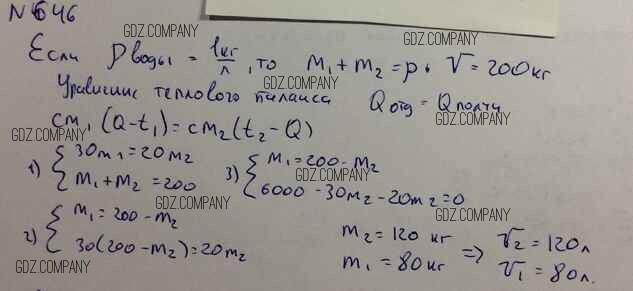 N646
Если ρ воды = 1кг/л, то m₁ + m₂ = ρ · V = 200 кг
Уравнение теплового баланса Qотд = Qполуч
cm₁(Q-t₁) = cm₂(t₂-Q)
1) { 30m₁ = 20m₂
m₁ + m₂ = 200
2) { m₁ = 200 - m₂
30(200 - m₂) = 20m₂
3) { m₁ = 200 - m₂
6000 - 30m₂ - 20m₂ = 0
m₂ = 120 кг
m₁ = 80 кг
=> V₂ = 120л
V₁ = 80л.
GDZ.COMPANY
GDZ.COMPANY
GDZ.COMPANY
GDZ.COMPANY
GDZ.COMPANY
GDZ.COMPANY
GDZ.COMPANY
GDZ.COMPANY
GDZ.COMPANY
GDZ.COMPANY
GDZ.COMPANY
GDZ.COMPANY